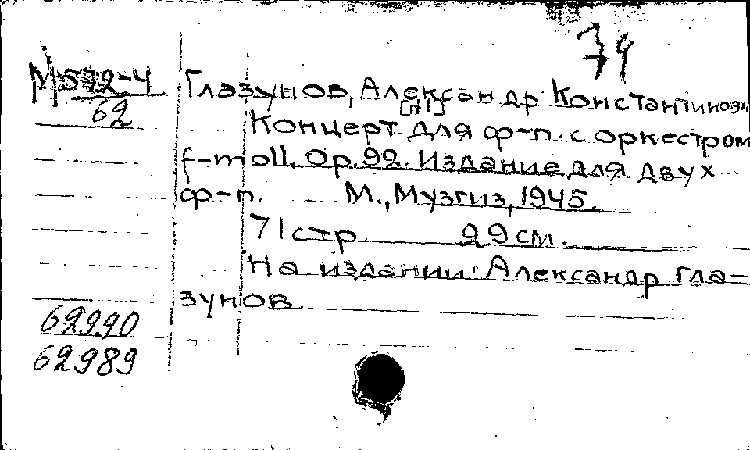 74
М 572-4 Глазунов, Александр Константинови
62 [п1]
Концерт для ф-п. с оркестром
f-moll. Op.92. Издание для двух
ф-п. М., Музгиз, 1945.
71 стр 29 см.
На издании: Александр Гла-
зунов
62990
62989